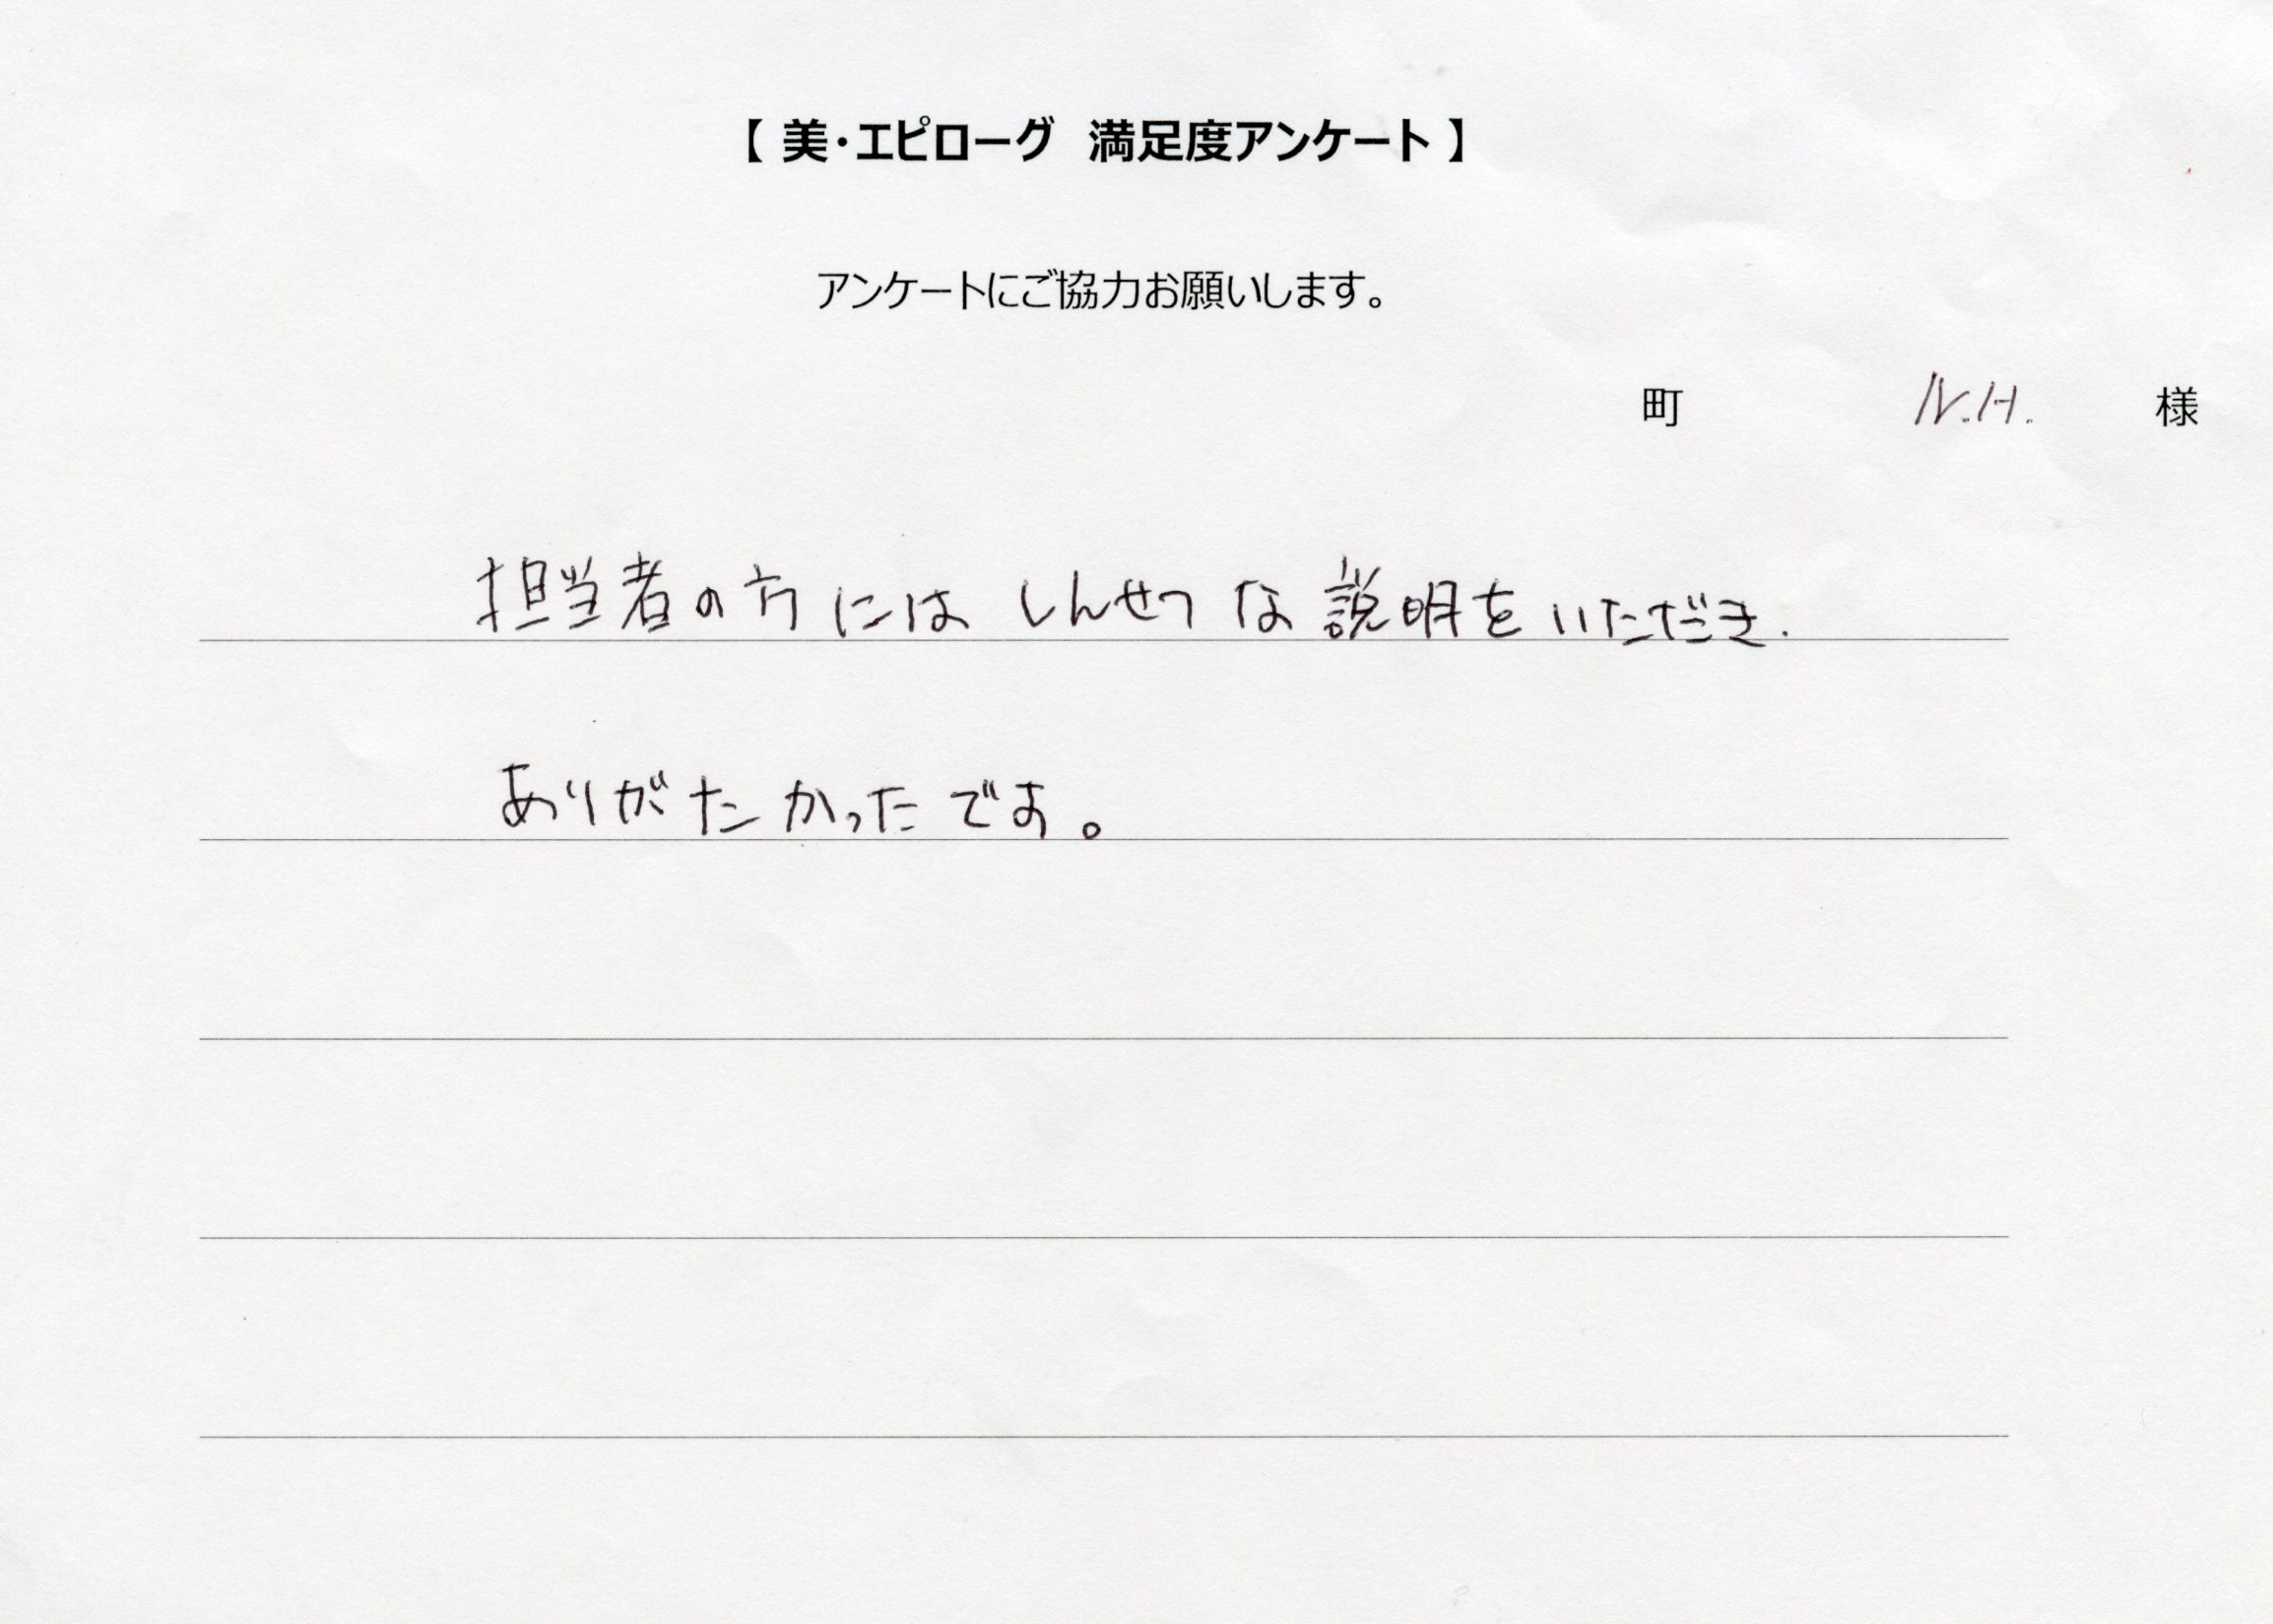 【 美・エピローグ 満足度アンケート 】
アンケートにご協力お願いします。
町 N.H. 様
担当者の方には しんせつな 説明を いただき.
ありがたかったです。